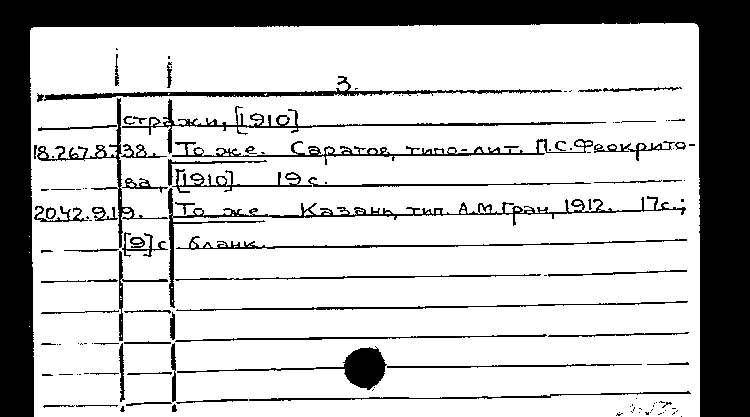 3.
стражи, [1910]
18.267.8.738. То же. Саратов, типо-лит. П.С.Феокрито-
ва, [1910]. 19 с.
20.42.9.19. То же. Казань, тип. А.М.Гран, 1912. 17с.;
[9] с. бланк.